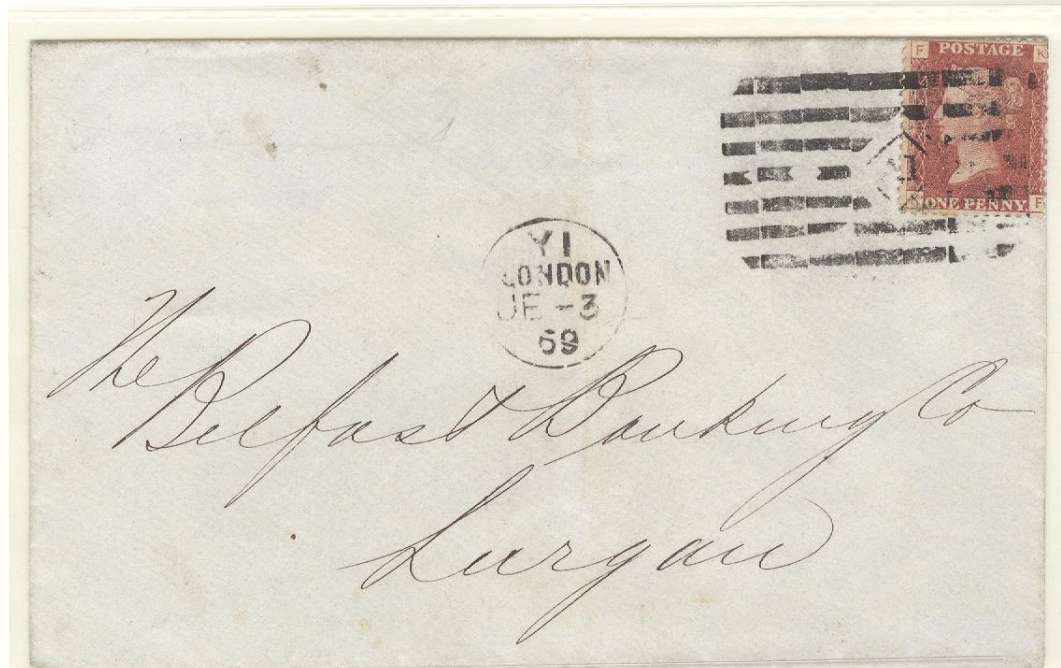 F POSTAGE K
K ONE PENNY F
Y1
LONDON
JE - 3
69
The
Belfast Banking Co
Lurgan